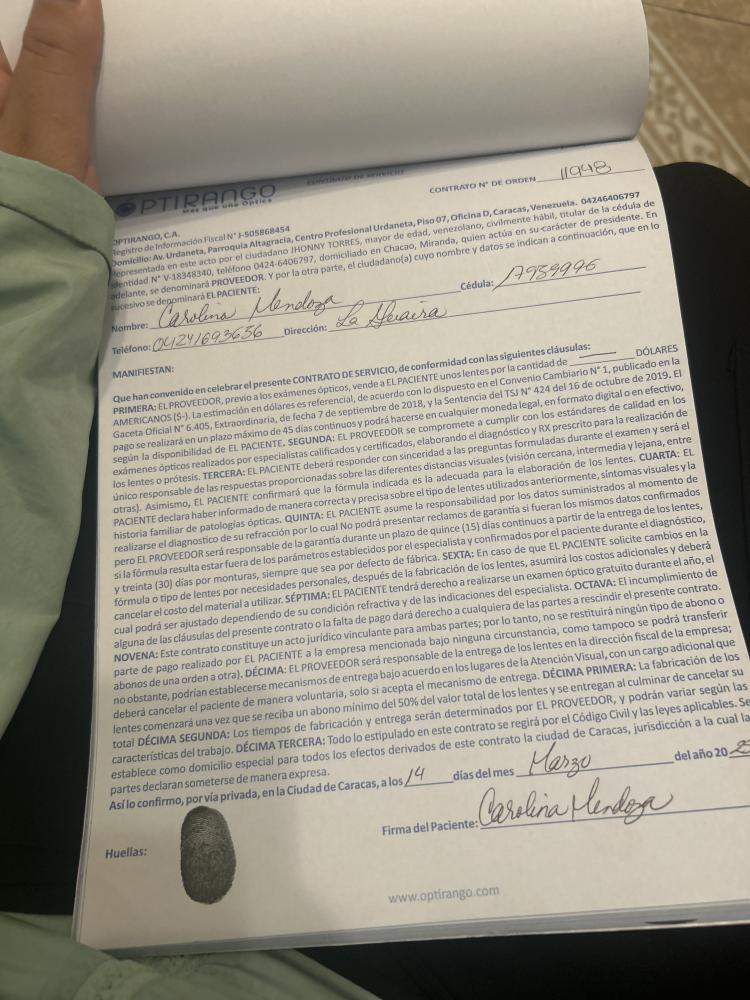 CONTRATO DE SERVICIO
OPTIRANGO
Más que una Óptica
CONTRATO N° DE ORDEN 11948
OPTIRANGO, C.A.
Registro de Información Fiscal N° J-505868454
Domicilio: Av. Urdaneta, Parroquia Altagracia, Centro Profesional Urdaneta, Piso 07, Oficina D, Caracas, Venezuela. 04246406797
Representada en este acto por el ciudadano JHONNY TORRES, mayor de edad, venezolano, civilmente hábil, titular de la cédula de
identidad N° V-18348340, teléfono 0424-6406797, domiciliado en Chacao, Miranda, quien actúa en su carácter de presidente. En
adelante, se denominará PROVEEDOR. Y por la otra parte, el ciudadano(a) cuyo nombre y datos se indican a continuación, que en lo
sucesivo se denominará EL PACIENTE:
Nombre: Carolina Mendoza Cédula: 17959996
Teléfono: 04241693656 Dirección: La Guaira
MANIFIESTAN:
Que han convenido en celebrar el presente CONTRATO DE SERVICIO, de conformidad con las siguientes cláusulas:
PRIMERA: EL PROVEEDOR, previo a los exámenes ópticos, vende a EL PACIENTE unos lentes por la cantidad de DÓLARES
AMERICANOS ($-). La estimación en dólares es referencial, de acuerdo con lo dispuesto en el Convenio Cambiario N° 1, publicado en la
Gaceta Oficial N° 6.405, Extraordinaria, de fecha 7 de septiembre de 2018, y la Sentencia del TSJ N° 424 del 16 de octubre de 2019. El
pago se realizará en un plazo máximo de 45 días continuos y podrá hacerse en cualquier moneda legal, en formato digital o en efectivo,
según la disponibilidad de EL PACIENTE. SEGUNDA: EL PROVEEDOR se compromete a cumplir con los estándares de calidad en los
exámenes ópticos realizados por especialistas calificados y certificados, elaborando el diagnóstico y RX prescrito para la realización de
los lentes o prótesis. TERCERA: EL PACIENTE deberá responder con sinceridad a las preguntas formuladas durante el examen y será el
único responsable de las respuestas proporcionadas sobre las diferentes distancias visuales (visión cercana, intermedia y lejana, entre
otras). Asimismo, EL PACIENTE confirmará que la fórmula indicada es la adecuada para la elaboración de los lentes. CUARTA: EL
PACIENTE declara haber informado de manera correcta y precisa sobre el tipo de lentes utilizados anteriormente, síntomas visuales y la
historia familiar de patologías ópticas. QUINTA: EL PACIENTE asume la responsabilidad por los datos suministrados al momento de
realizarse el diagnostico de su refracción por lo cual No podrá presentar reclamos de garantía si fueran los mismos datos confirmados
pero EL PROVEEDOR será responsable de la garantía durante un plazo de quince (15) días continuos a partir de la entrega de los lentes,
si la fórmula resulta estar fuera de los parámetros establecidos por el especialista y confirmados por el paciente durante el diagnóstico,
y treinta (30) días por monturas, siempre que sea por defecto de fábrica. SEXTA: En caso de que EL PACIENTE solicite cambios en la
fórmula o tipo de lentes por necesidades personales, después de la fabricación de los lentes, asumirá los costos adicionales y deberá
cancelar el costo del material a utilizar. SÉPTIMA: EL PACIENTE tendrá derecho a realizarse un examen óptico gratuito durante el año, el
cual podrá ser ajustado dependiendo de su condición refractiva y de las indicaciones del especialista. OCTAVA: El incumplimiento de
alguna de las cláusulas del presente contrato o la falta de pago dará derecho a cualquiera de las partes a rescindir el presente contrato.
NOVENA: Este contrato constituye un acto jurídico vinculante para ambas partes; por lo tanto, no se restituirá ningún tipo de abono o
parte de pago realizado por EL PACIENTE a la empresa mencionada bajo ninguna circunstancia, como tampoco se podrá transferir
abonos de una orden a otra). DÉCIMA: EL PROVEEDOR será responsable de la entrega de los lentes en la dirección fiscal de la empresa;
no obstante, podrían establecerse mecanismos de entrega bajo acuerdo en los lugares de la Atención Visual, con un cargo adicional que
deberá cancelar el paciente de manera voluntaria, solo si acepta el mecanismo de entrega. DÉCIMA PRIMERA: La fabricación de los
lentes comenzará una vez que se reciba un abono mínimo del 50% del valor total de los lentes y se entregan al culminar de cancelar su
total DÉCIMA SEGUNDA: Los tiempos de fabricación y entrega serán determinados por EL PROVEEDOR, y podrán variar según las
características del trabajo. DÉCIMA TERCERA: Todo lo estipulado en este contrato se regirá por el Código Civil y las leyes aplicables. Se
establece como domicilio especial para todos los efectos derivados de este contrato la ciudad de Caracas, jurisdicción a la cual la
partes declaran someterse de manera expresa.
Así lo confirmo, por vía privada, en la Ciudad de Caracas, a los 14 días del mes Marzo del año 20 25
Firma del Paciente: Carolina Mendoza
Huellas:
www.optirango.com